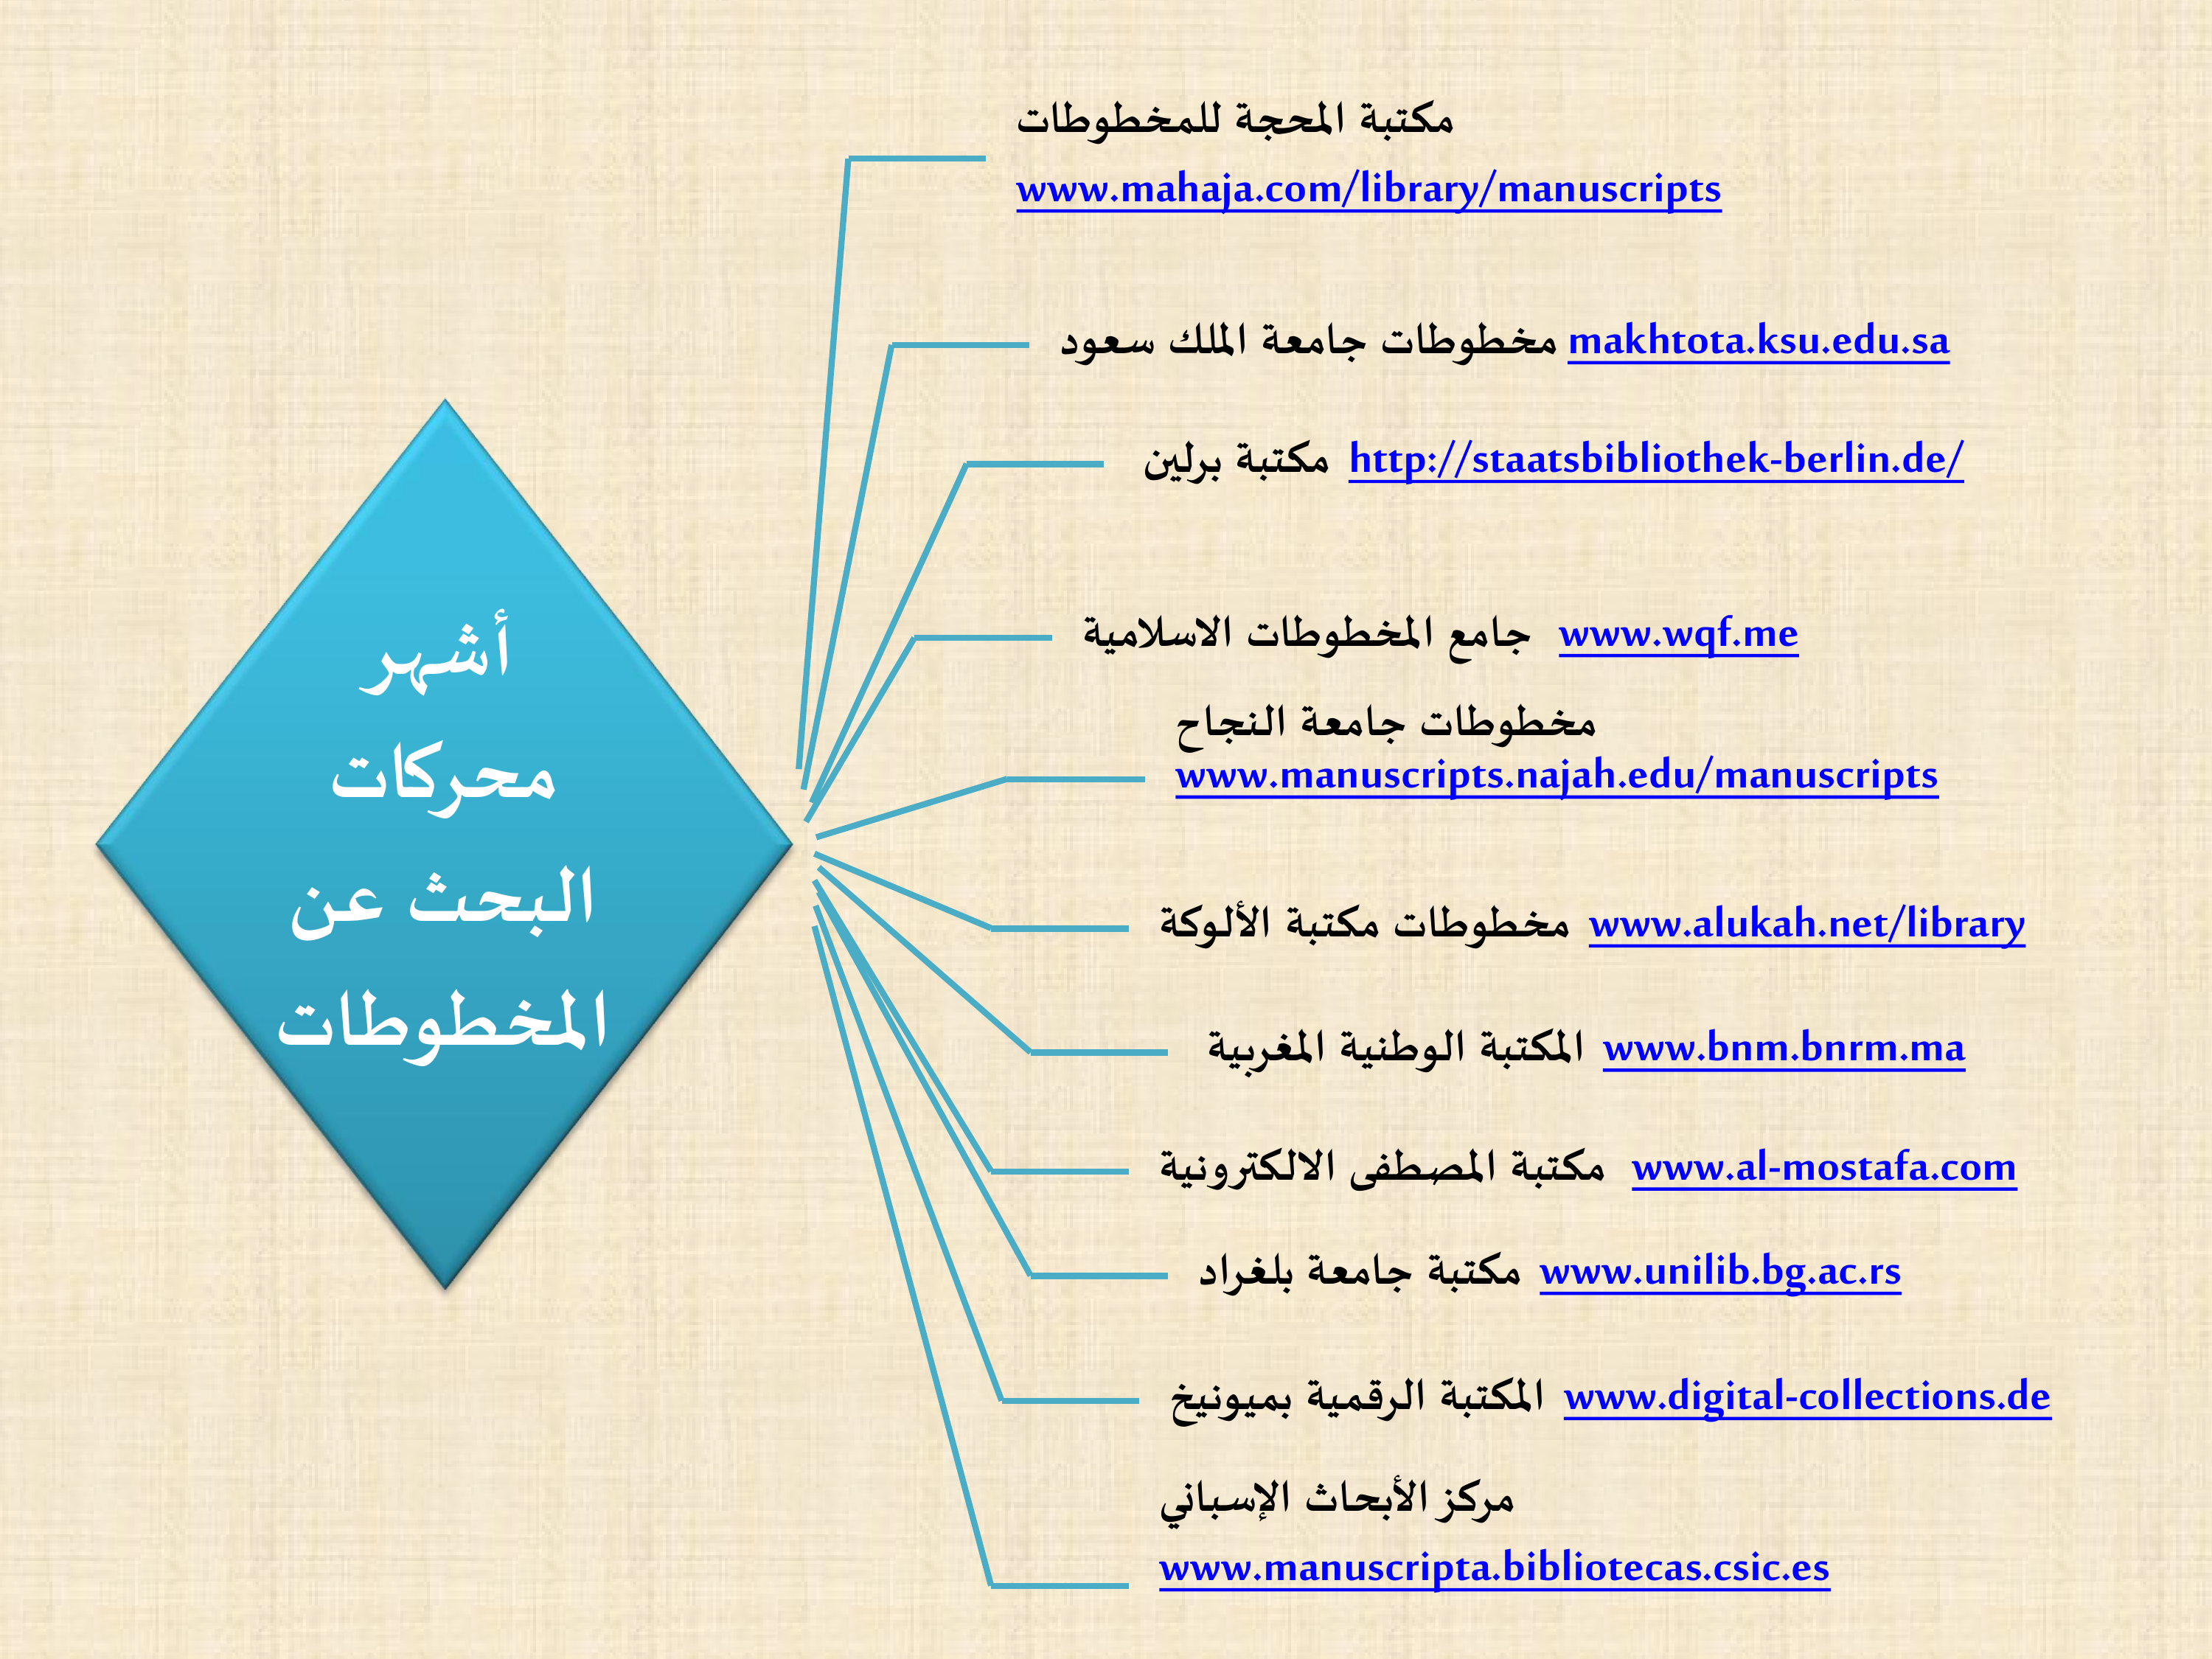 أشهر
محركات
البحث عن
المخطوطات
مكتبة المحجة للمخطوطات
www.mahaja.com/library/manuscripts
مخطوطات جامعة الملك سعود makhtota.ksu.edu.sa
مكتبة برلين http://staatsbibliothek-berlin.de/
جامع المخطوطات الاسلامية www.wqf.me
مخطوطات جامعة النجاح
www.manuscripts.najah.edu/manuscripts
مخطوطات مكتبة الألوكة www.alukah.net/library
المكتبة الوطنية المغربية www.bnm.bnrm.ma
مكتبة المصطفى الالكترونية www.al-mostafa.com
مكتبة جامعة بلغراد www.unilib.bg.ac.rs
المكتبة الرقمية بميونيخ www.digital-collections.de
مركز الأبحاث الإسباني
www.manuscripta.bibliotecas.csic.es